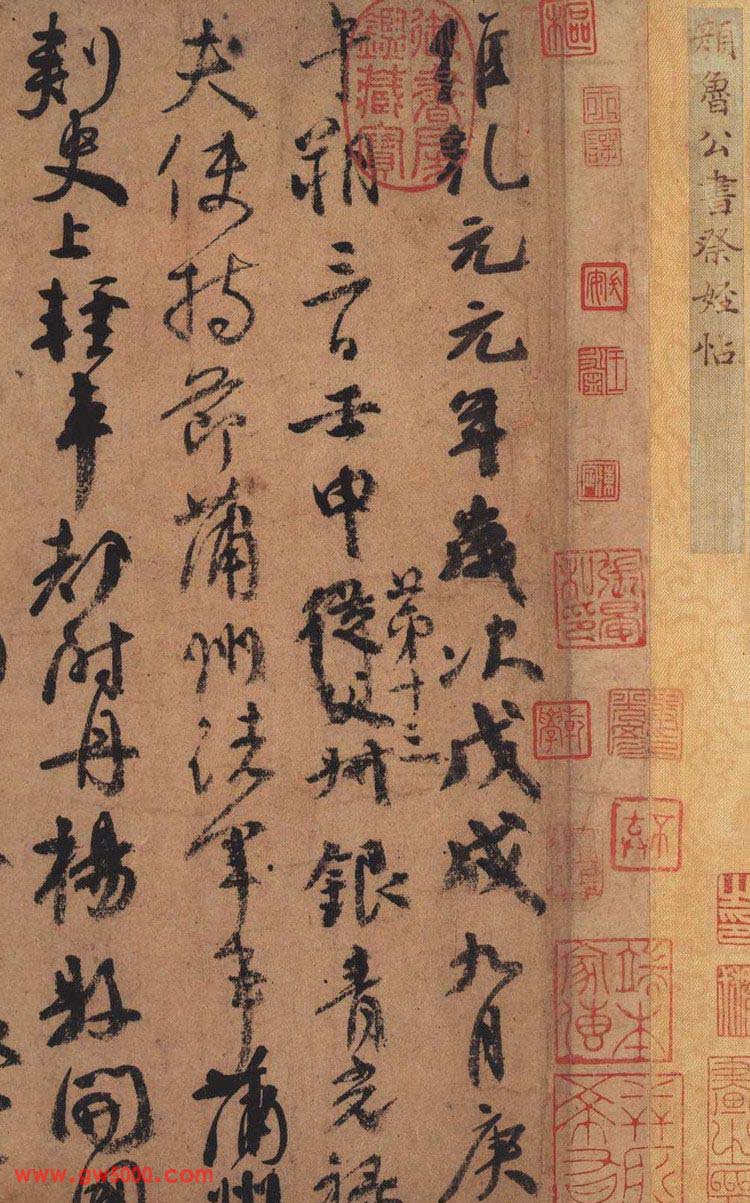 顏魯公書祭姪帖
樞
御書房鑑藏寶
張晏私印
乾學
維乾元元年歲次戊戌九月庚
第十三
午朔三日壬申從父叔銀青光祿
夫使持節蒲州諸軍事蒲州
刺史上輕車都尉丹楊縣開國
www.gw5000.com